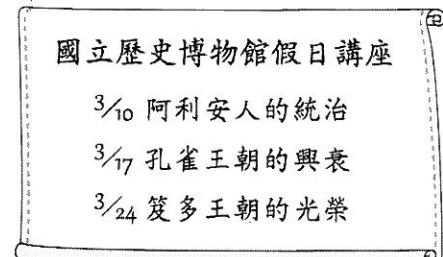 國立歷史博物館假日講座
3/10 阿利安人的統治
3/17 孔雀王朝的興衰
3/24 笈多王朝的光榮